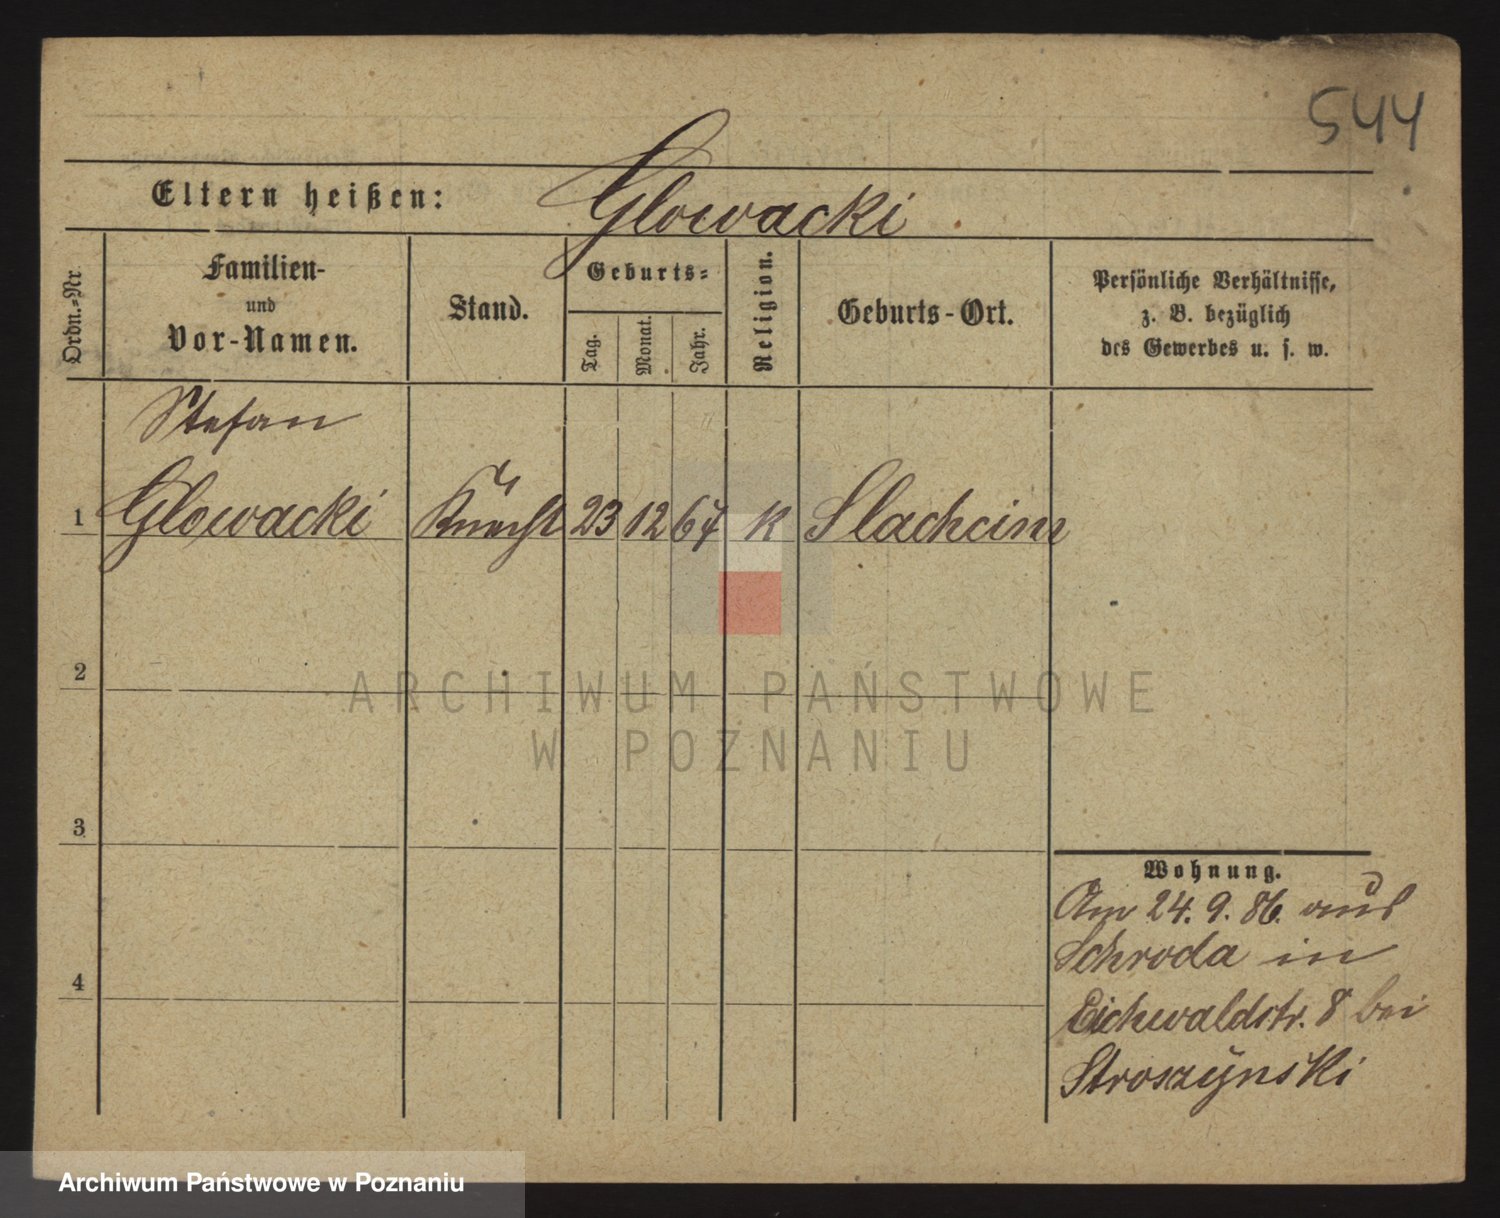 544
Eltern heißen: Glowacki
Ordn.-Nr.
Familien-
und
Vor-Namen.
Stand.
Geburts-
Tag.
Monat.
Jahr.
Religion.
Geburts-Ort.
Persönliche Verhältnisse,
z. B. bezüglich
des Gewerbes u. s. w.
Stefan
1 Glowacki Knecht 23 12 64 K Slachcim
2
3
4
Wohnung.
Am 24. 9. 86. aus
Schroda in
Eichwaldstr. 8 bei
Stroszynski
ARCHIWUM PAŃSTWOWE
W POZNANIU
Archiwum Państwowe w Poznaniu